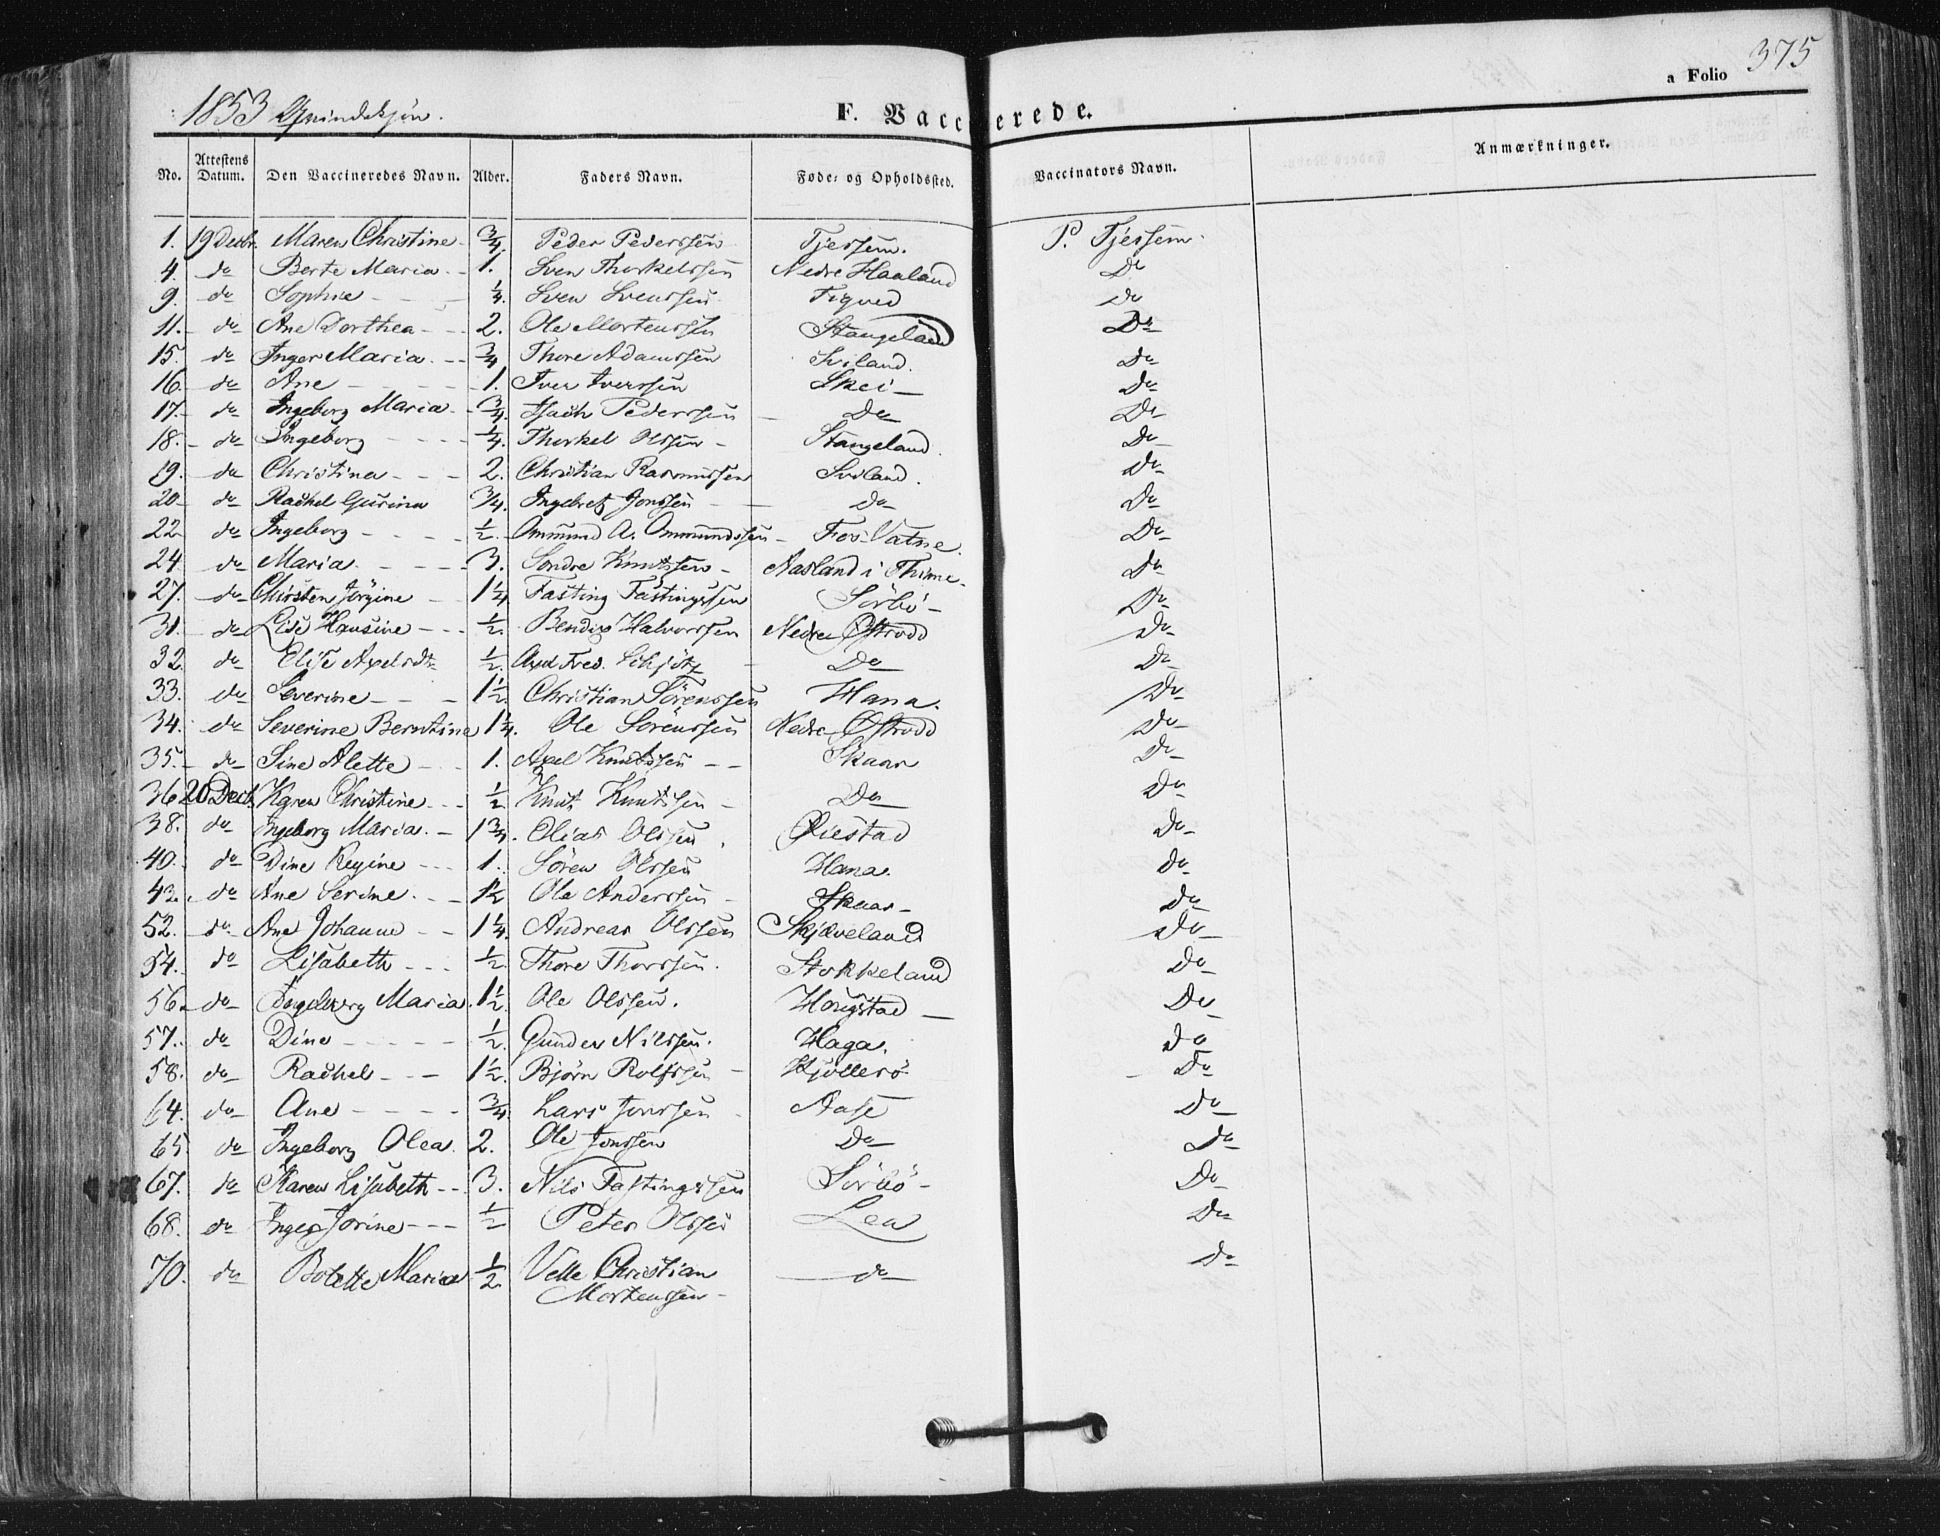 375
a Folio
1853 Qvindekjøn.
F. Vaccinerede.
No. Attestens Datum. Den Vaccineredes Navn. Alder. Faders Navn. Føde- og Opholdssted. Vaccinators Navn. Anmærkninger.
1. 19 Decbr. Maren Christine 3/4. Peder Pederssen Tjessem. P. Tjessem.
4. do Berte Maria 1. Sven Thorkelssen Nedre Haaland Do
9. do Sophie 1/4. Sven Svenssen Figved Do
11. do Ane Dorthea 2. Ole Mortenssen Stangeland Do
15. do Inger Maria 3/4 Thore Adamssen Sviland. Do
16. do Ane 1. Iver Iverssen Skei Do
17. do Ingeborg Maria 3/4. Isach Pederssen Do Do
18. do Ingeborg 1/4. Thorkel Olssen Stangeland. Do
19. do Christina 2. Christian Rasmussen Sviland. Do
20 do Rachel Gurina 3/4. Ingebret Jonssen Do Do
22 do Ingeborg 1/2. Ommund A. Ommundssen Fos-Vatne. Do
24. do Maria. 3. Sondre Knutssen Aasland i Thime. Do
27. do Chirsten Jörgine 1 1/4 Fasting Fastingssen Sörbö Do
31. do Lise Hansine 1/2. Bendix Halvorssen Nedre Østrodd Do
32 do Elise Axelsdtr 1/2. Axel Fred. Schjötz Do Do
33. do Severine 1 1/2. Christian Sörenssen Hana. Do
34. do Severine Berntine 1 1/4. Ole Sörenssen Nedre Østrodd Do
35. do Sine Alette 1. Axel Knutssen Skaar Do
36 20 Decb. Karen Christine 1/2 Knut Knutssen Do Do
38. do Ingeborg Maria. 1 3/4. Elias Olssen. Do
40. do Dine Regine 1. Sören Olssen Hana. Do
43. do Ane Serine. 1 1/2 Ole Anderssen Skaar Do
52. do Ane Johanne 1 1/4. Andreas Olssen Skjæveland Do
54. do Lisabeth 1/2. Thore Thorssen. Stokkeland Do
56. do Ingeborg Maria. 1 1/2 Ole Olssen. Hougstad Do
57. do Dine 1/2. Gunder Nilssen. Haga. Do
58. do Rachel 1 1/2. Björn Rolfssen Do
64. do Ane 3/4. Lars Jonssen Aase Do
65 do Ingeborg Olea. 2. Ole Jonssen Do Do
67. do Karen Lisabeth 3. Nils Fastingssen Sörbö Do
68. do Inger Jorine 1/2 Peter Olssen Lea Do
70. do Bolette Maria 1/2. Velle Christian do do
Mortenssen